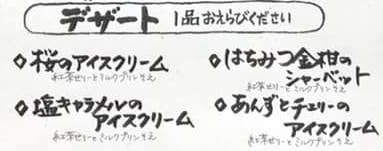 デザート 1品おえらびください
◇桜のアイスクリーム
紅茶ゼリーとミルクプリンそえ
◇塩キャラメルの
アイスクリーム
紅茶ゼリーとミルクプリンそえ
◇はちみつ金柑の
シャーベット
紅茶ゼリーとミルクプリンそえ
◇あんずとチェリーの
アイスクリーム
紅茶ゼリーとミルクプリンそえ